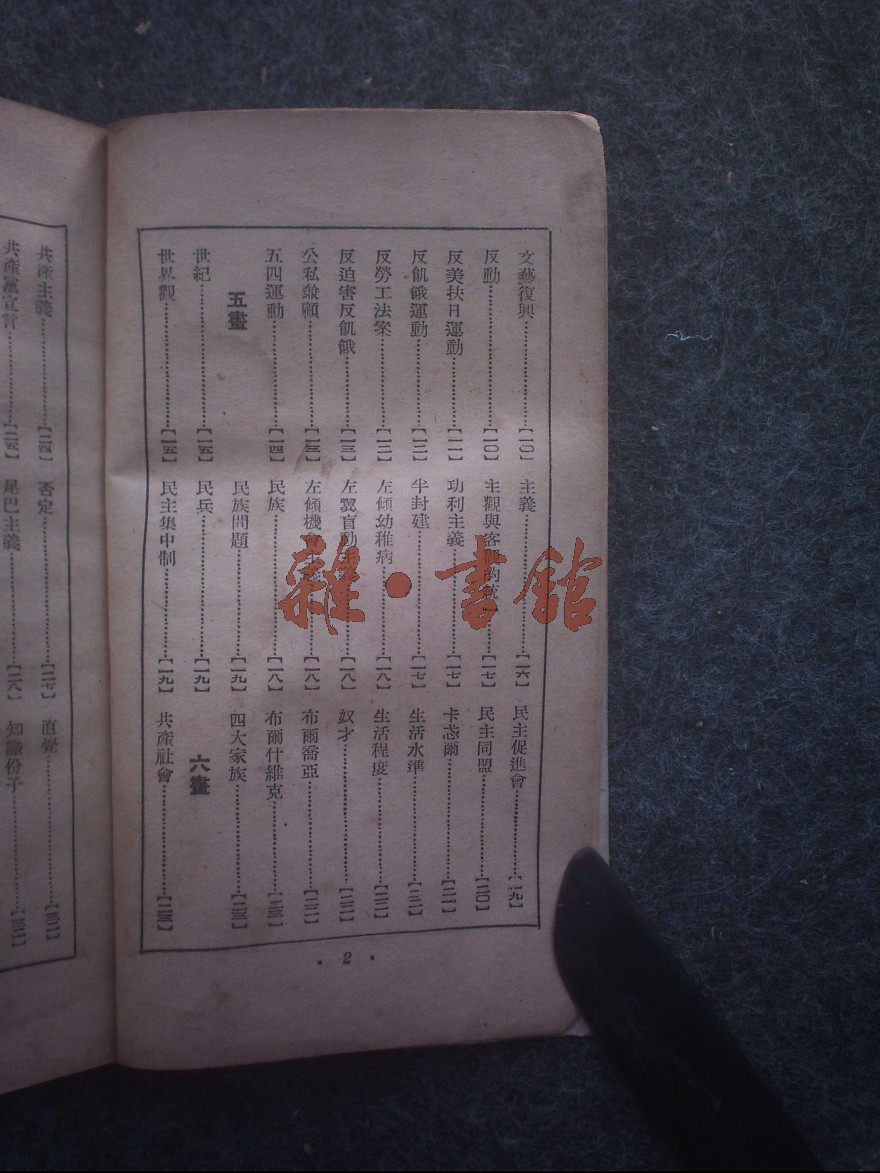 文藝復興……【一〇】
反動……【一〇】
反美扶日運動……【一一】
反飢餓運動……【一二】
反勞工法案……【一二】
反迫害反飢餓……【一三】
公私兼顧……【一三】
五四運動……【一四】
五畫
世紀……【一五】
世界觀……【一五】
主義……【一六】
主觀與客觀的統一……【一七】
功利主義……【一七】
半封建……【一七】
左傾幼稚病……【一八】
左翼盲動主義……【一八】
左傾機會主義……【一八】
民族……【一八】
民族問題……【一九】
民兵……【一九】
民主集中制……【一九】
民主促進會……【一九】
民主同盟……【二〇】
卡忒爾……【二一】
生活水準……【二一】
生活程度……【二二】
奴才……【二二】
布爾喬亞……【二二】
布爾什維克……【二三】
四大家族……【二三】
六畫
共產社會……【二三】
·2·
共產主義……【二四】
共產黨宣言……【二五】
否定……【二七】
尾巴主義……【二八】
直覺……【三二】
知識份子……【三二】
雜·書館